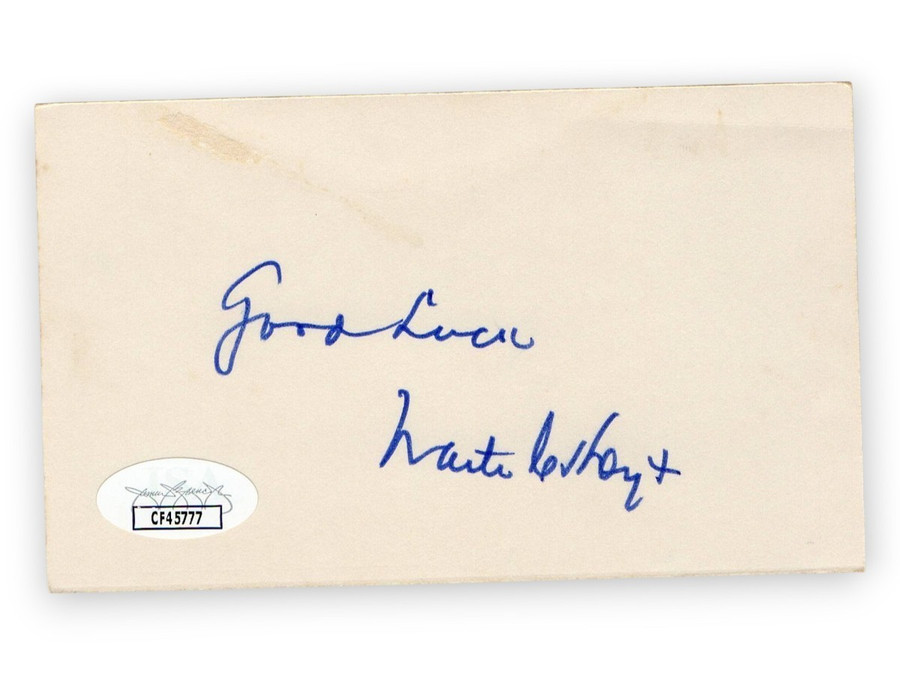 Good Luck
Waite Hoyt
CF45777